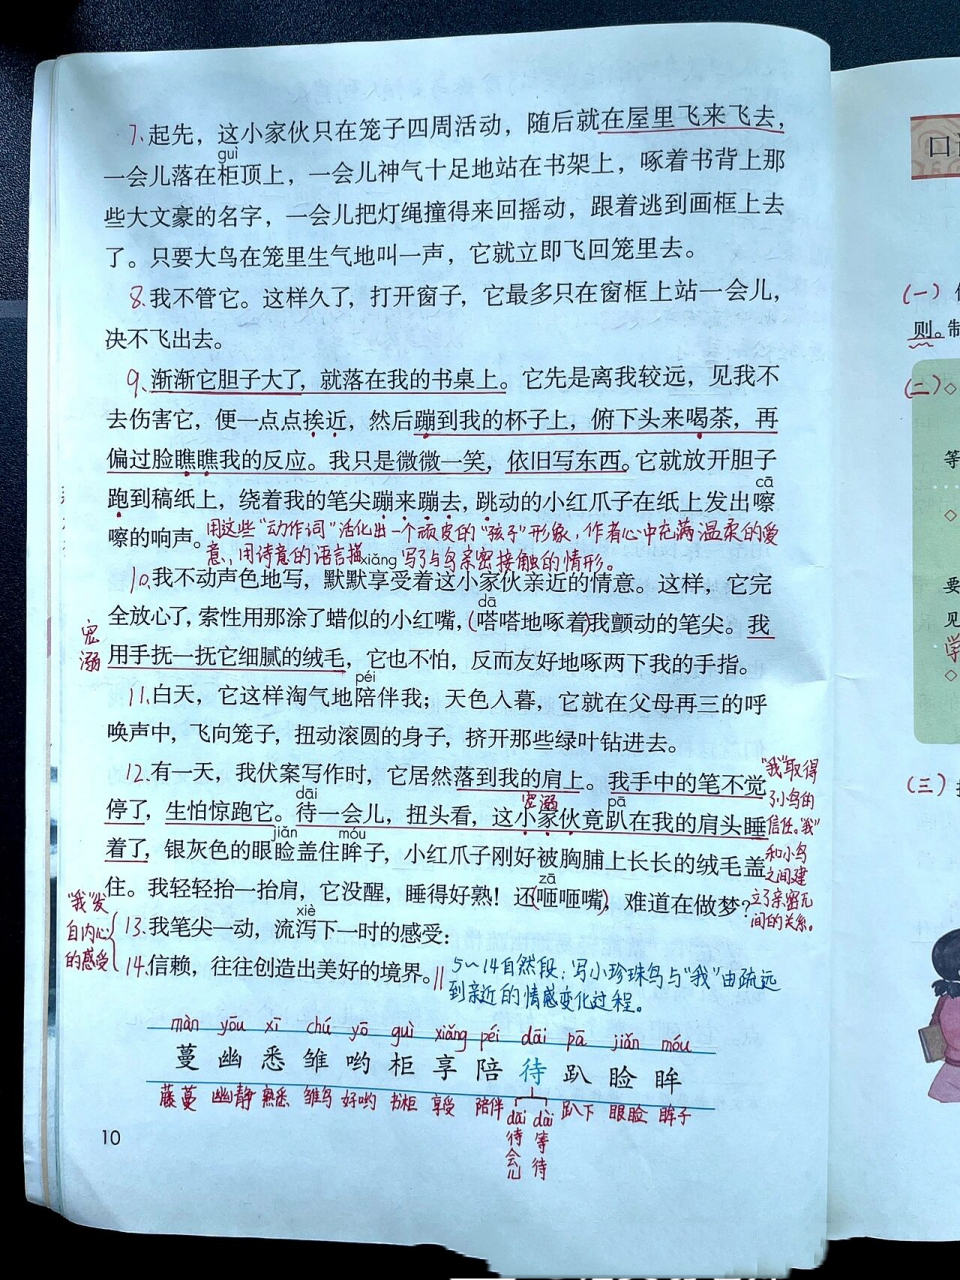 7.起先，这小家伙只在笼子四周活动，随后就在屋里飞来飞去，
guì
一会儿落在柜顶上，一会儿神气十足地站在书架上，啄着书背上那
些大文豪的名字，一会儿把灯绳撞得来回摇动，跟着逃到画框上去
了。只要大鸟在笼里生气地叫一声，它就立即飞回笼里去。
8.我不管它。这样久了，打开窗子，它最多只在窗框上站一会儿，
决不飞出去。
9、渐渐它胆子大了，就落在我的书桌上。它先是离我较远，见我不
去伤害它，便一点点挨近，然后蹦到我的杯子上，俯下头来喝茶，再
偏过脸瞧瞧我的反应。我只是微微一笑，依旧写东西。它就放开胆子
cā
跑到稿纸上，绕着我的笔尖蹦来蹦去，跳动的小红爪子在纸上发出嚓
嚓的响声。
用这些“动作词”活化出一个顽皮的“孩子”形象，作者心中充满温柔的爱
意，用诗意的语言描写了与鸟亲密接触的情形。
xiǎng
10.我不动声色地写，默默享受着这小家伙亲近的情意。这样，它完
dā
全放心了，索性用那涂了蜡似的小红嘴，(嗒嗒地啄着)我颤动的笔尖。我
宠溺
用手抚一抚它细腻的绒毛，它也不怕，反而友好地啄两下我的手指。
péi
11.白天，它这样淘气地陪伴我；天色入暮，它就在父母再三的呼
唤声中，飞向笼子，扭动滚圆的身子，挤开那些绿叶钻进去。
12.有一天，我伏案写作时，它居然落到我的肩上。我手中的笔不觉
dāi 宠溺 pā
停了，生怕惊跑它。待一会儿，扭头看，这小家伙竟趴在我的肩头睡
jiǎn móu
着了，银灰色的眼睑盖住眸子，小红爪子刚好被胸脯上长长的绒毛盖
zā
住。我轻轻抬一抬肩，它没醒，睡得好熟！还(咂咂嘴)，难道在做梦？
“我”取得
了小鸟的
信任。“我”
和小鸟
之间建
立了亲密无
间的关系。
xiè
13.我笔尖一动，流泻下一时的感受：
14.信赖，往往创造出美好的境界。
“我”发
自内心
的感受
5~14自然段：写小珍珠鸟与“我”由疏远
到亲近的情感变化过程。
màn yōu xī chú yō guì xiǎng péi dāi pā jiǎn móu
蔓 幽 悉 雏 哟 柜 享 陪 待 趴 睑 眸
藤蔓 幽静 熟悉 雏鸟 好哟 书柜 享受 陪伴 趴下 眼睑 眸子
dāi dài
待会儿 等待
10
口
(一)
则。制
(二)◇
等
◇
要
见
学
◇
(三)